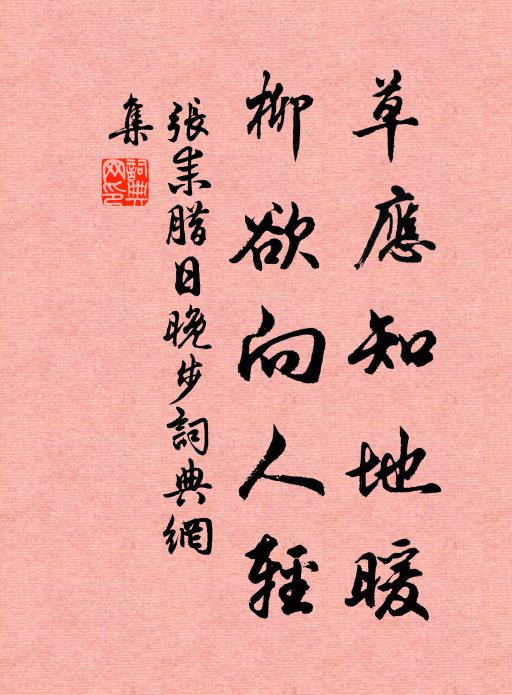 草應知地暖
柳欲向人輕
張耒腊日晚步詞典網
集
詞典網印